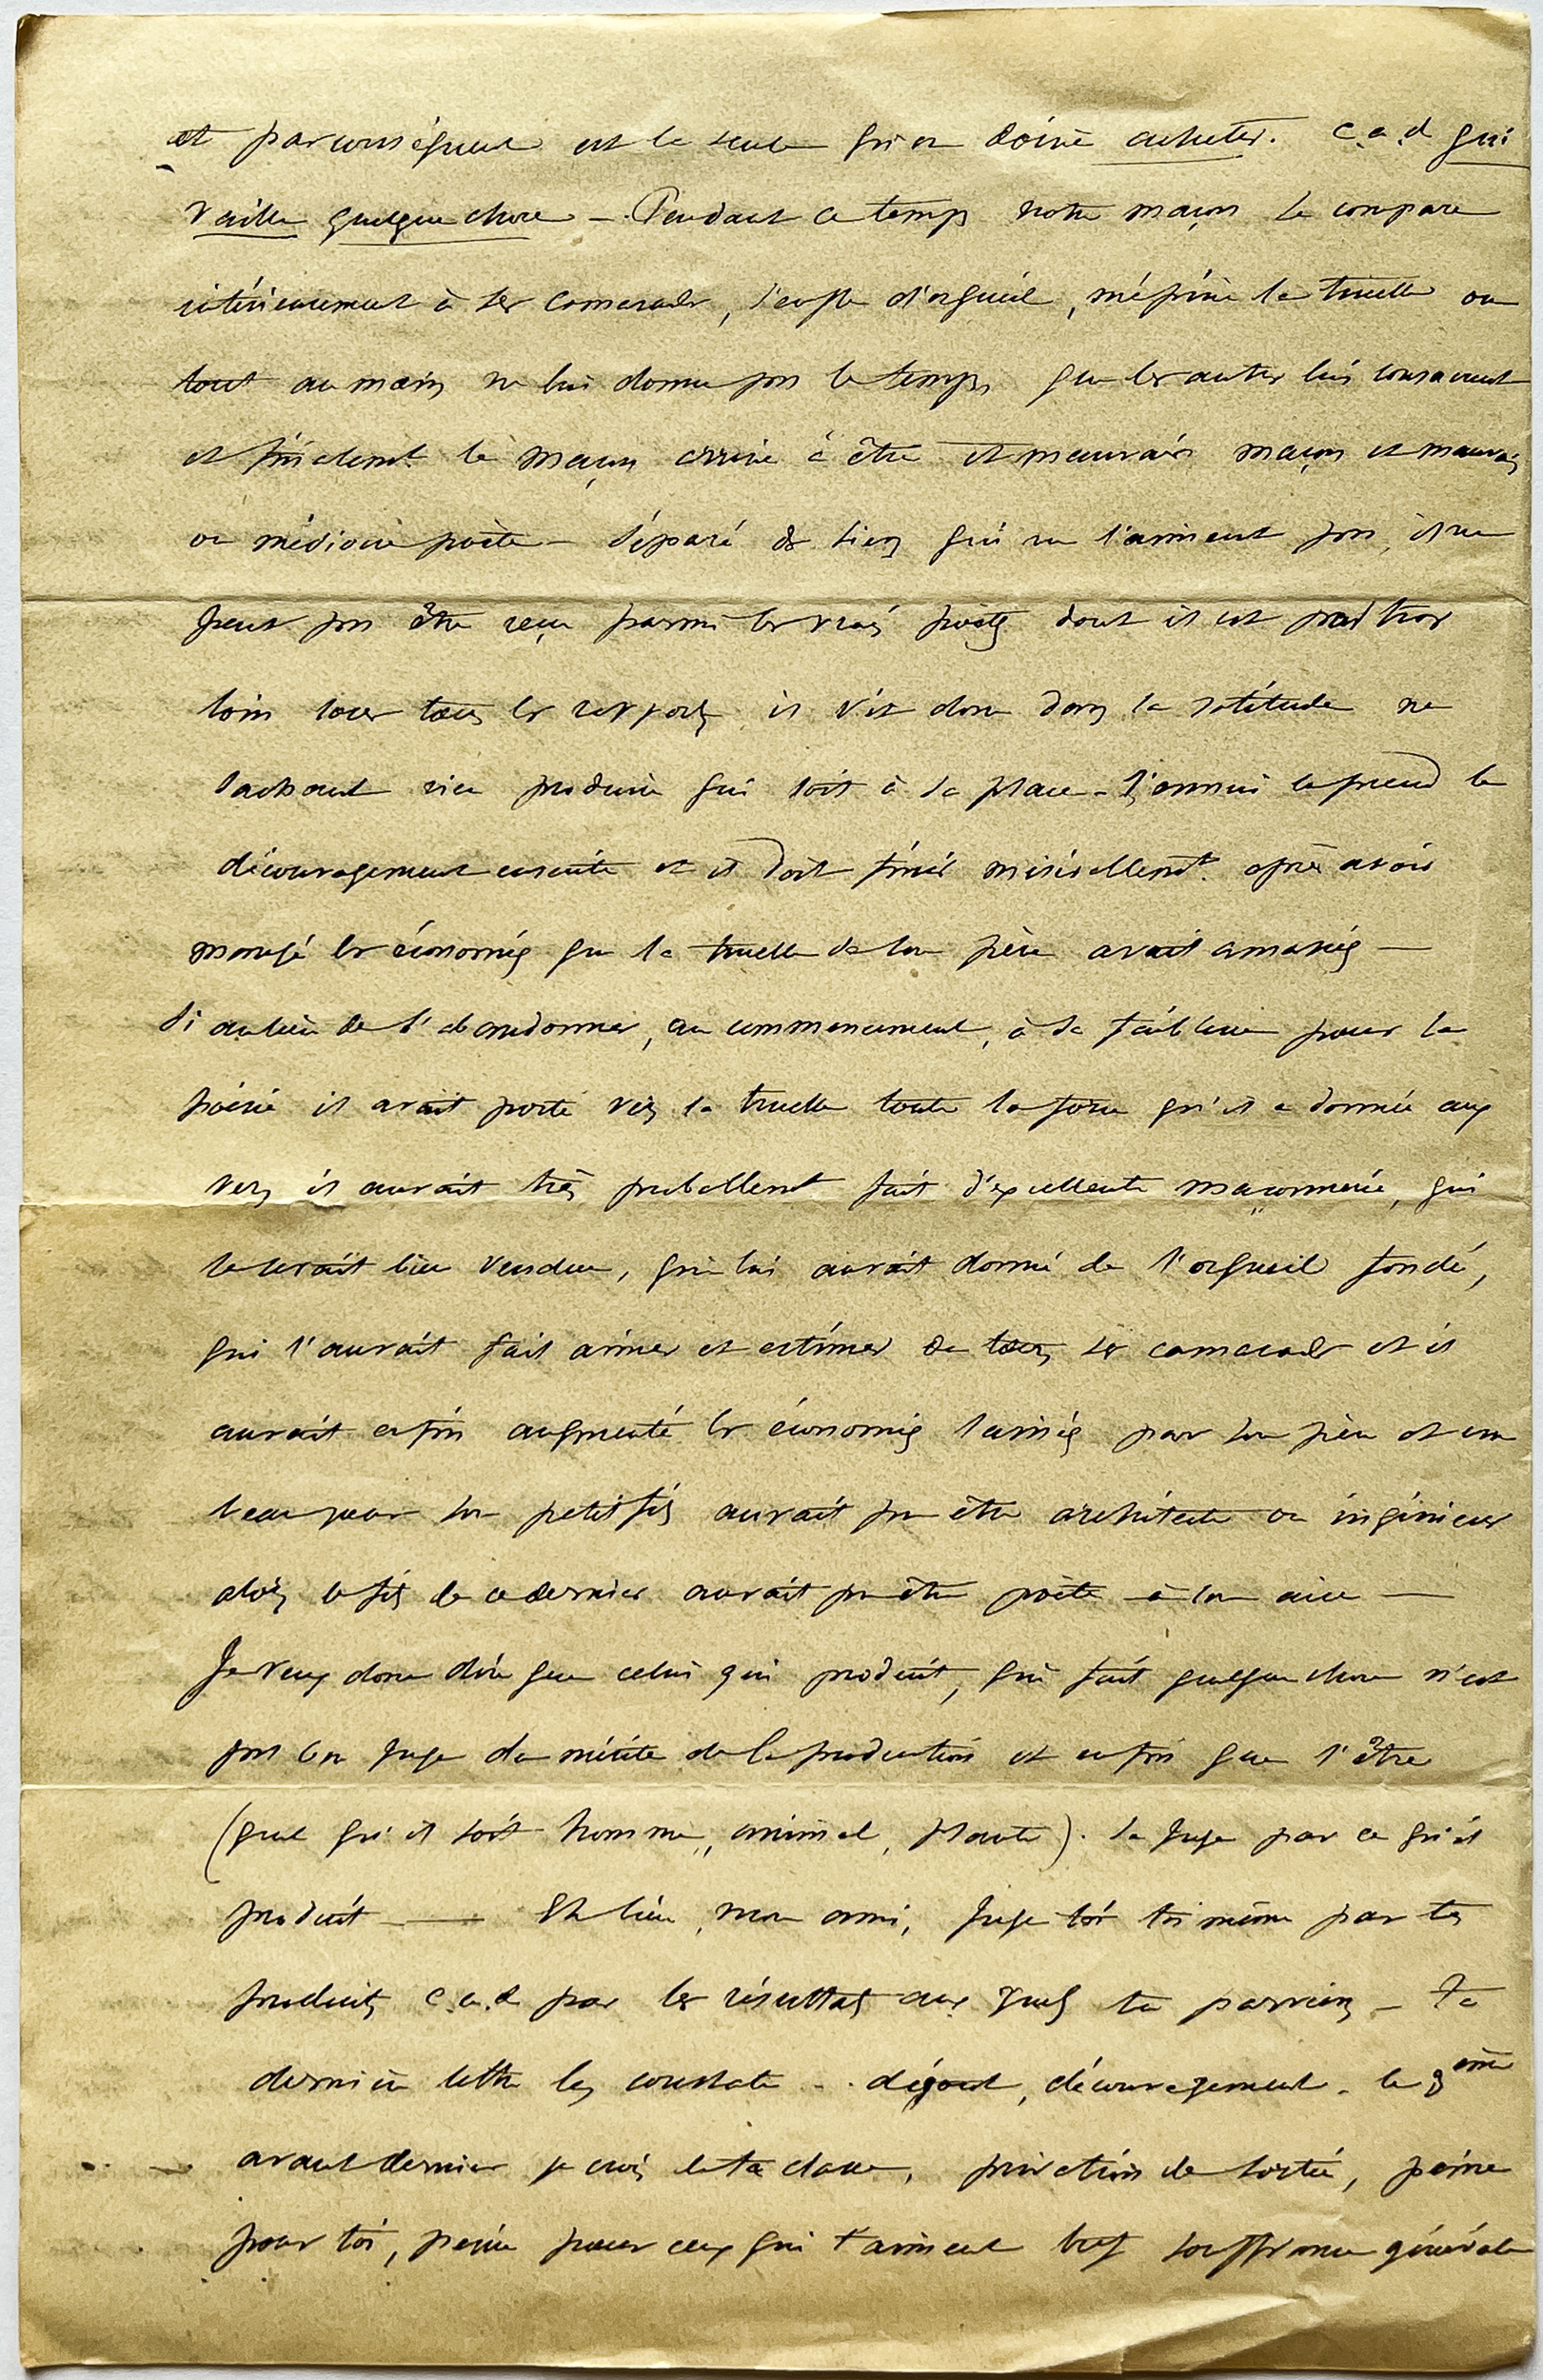 et par conséquent est la seule qu'on doive acheter. c.a.d qui
vaille quelque chose — Pendant ce temps notre maçon se compare
intérieurement à ses camarades, s'enfle d'orgueil, méprise la truelle ou
tout au moins ne lui donne pas le temps que les autres lui consacrent
et finalemt. le maçon arrive à être et mauvais maçon et mauvais
ou médiocre poète — séparé des siens qui ne l'aiment pas, il ne
peut pas être reçu parmi les vrais poètes dont il est trop
loin sous tous les rapports, il vit donc dans la solitude ne
sachant rien produire qui soit à sa place - l'ennui le prend le
découragement ensuite et il doit finir misérablemt. après avoir
mangé les économies que la truelle de son père avait amassées —
Si au lieu de s'abandonner, au commencement, à sa faiblesse pour la
poésie il avait porté vers la truelle toute la force qu'il a donnée aux
vers il aurait très probablemt fait d'excellente maçonnerie, qui
se serait bien vendue, qui lui aurait donné de l'orgueil fondé,
qui l'aurait fait aimer et estimer de tous ses camarades et il
aurait enfin augmenté les économies laissées par son père et un
beau jour son petit fils aurait pu être architecte ou ingénieur
alors le fils de ce dernier aurait pu être poète à son aise —
Je veux donc dire que celui qui produit, qui fait quelque chose n'est
pas bon juge du mérite de la production et enfin que l'être
(quel qu'il soit homme, animal, plante). se juge par ce qu'il
produit — Eh bien, mon ami, juge toi toi même par tes
produits c.a.d par les résultats aux quels tu parviens — Ta
dernière lettre les constate - . dégout, découragement. le 3ème
avant dernier je crois de ta classe, privation de sortie, peine
pour toi, peine pour ceux qui t'aiment bref souffrance générale